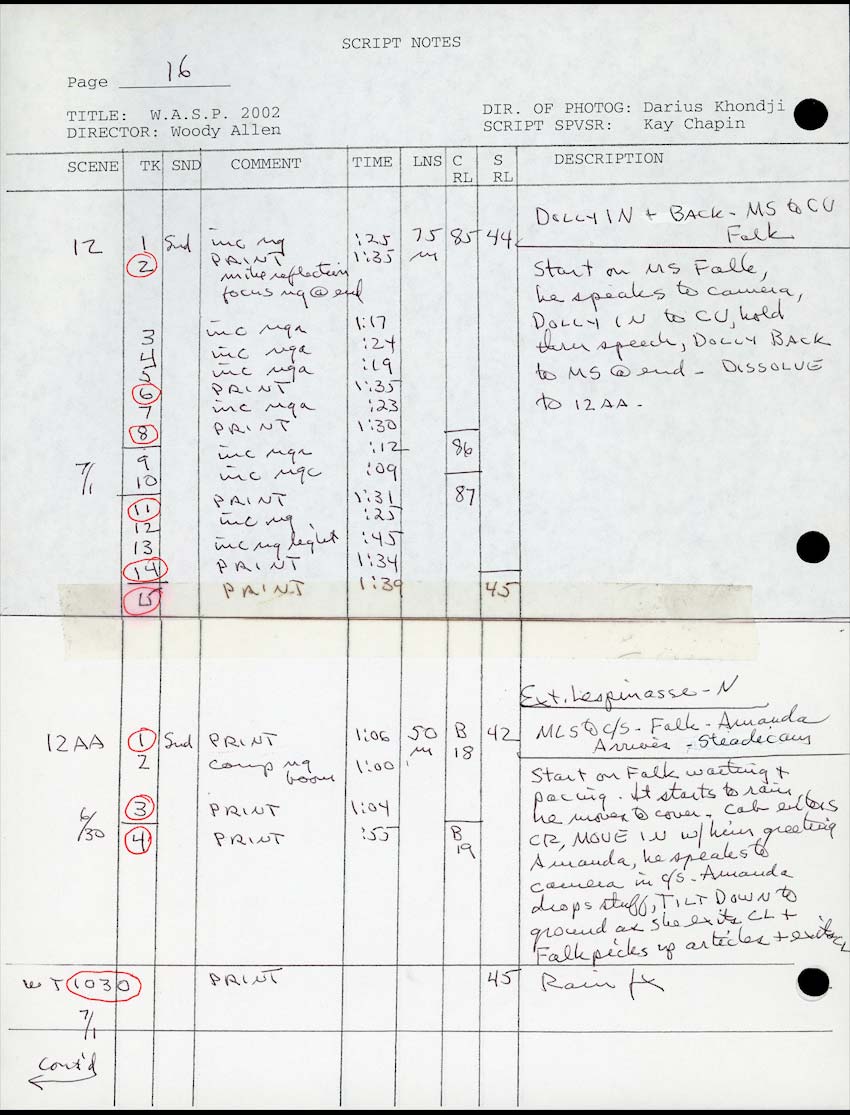 SCRIPT NOTES
Page 16
TITLE: W.A.S.P. 2002
DIR. OF PHOTOG: Darius Khondji
DIRECTOR: Woody Allen
SCRIPT SPVSR: Kay Chapin
SCENE TK SND COMMENT TIME LNS C RL S RL DESCRIPTION
DOLLY IN + BACK - MS to CU
Falk
12 1 Snd inc ng :25 75 m 85 44
2 PRINT 1:35
mike reflection
focus ng @ end
Start on MS Falk,
he speaks to camera,
DOLLY IN to CU, hold
thru speech, DOLLY BACK
to MS @ end - DISSOLVE
to 12AA.
3 inc nga 1:17
4 inc nga :24
5 inc nga :19
6 PRINT 1:35
7 inc nga :23
8 PRINT 1:30
9 inc nga :12 86
7/1
10 inc ngc :09
11 PRINT 1:31 87
12 inc ng :25
13 inc ng light :45
14 PRINT 1:34
15 PRINT 1:39 45
Ext. Lespinasse - N
MLS to c/s - Falk - Amanda
Arrives - Steadicam
12AA 1 Snd PRINT 1:06 50 m B 18 42
2 comp ng boom 1:00
3 PRINT 1:04
6/30
4 PRINT :55 B 19
Start on Falk waiting +
pacing. It starts to rain,
he moves to cover. Cab enters
CR, MOVE IN w/ him greeting
Amanda, he speaks to
camera in c/s - Amanda
drops stuff, TILT DOWN to
ground as she exits CL +
Falk picks up articles + exits CL
WT 1030 PRINT 45 Rain fx
7/1
Cont'd